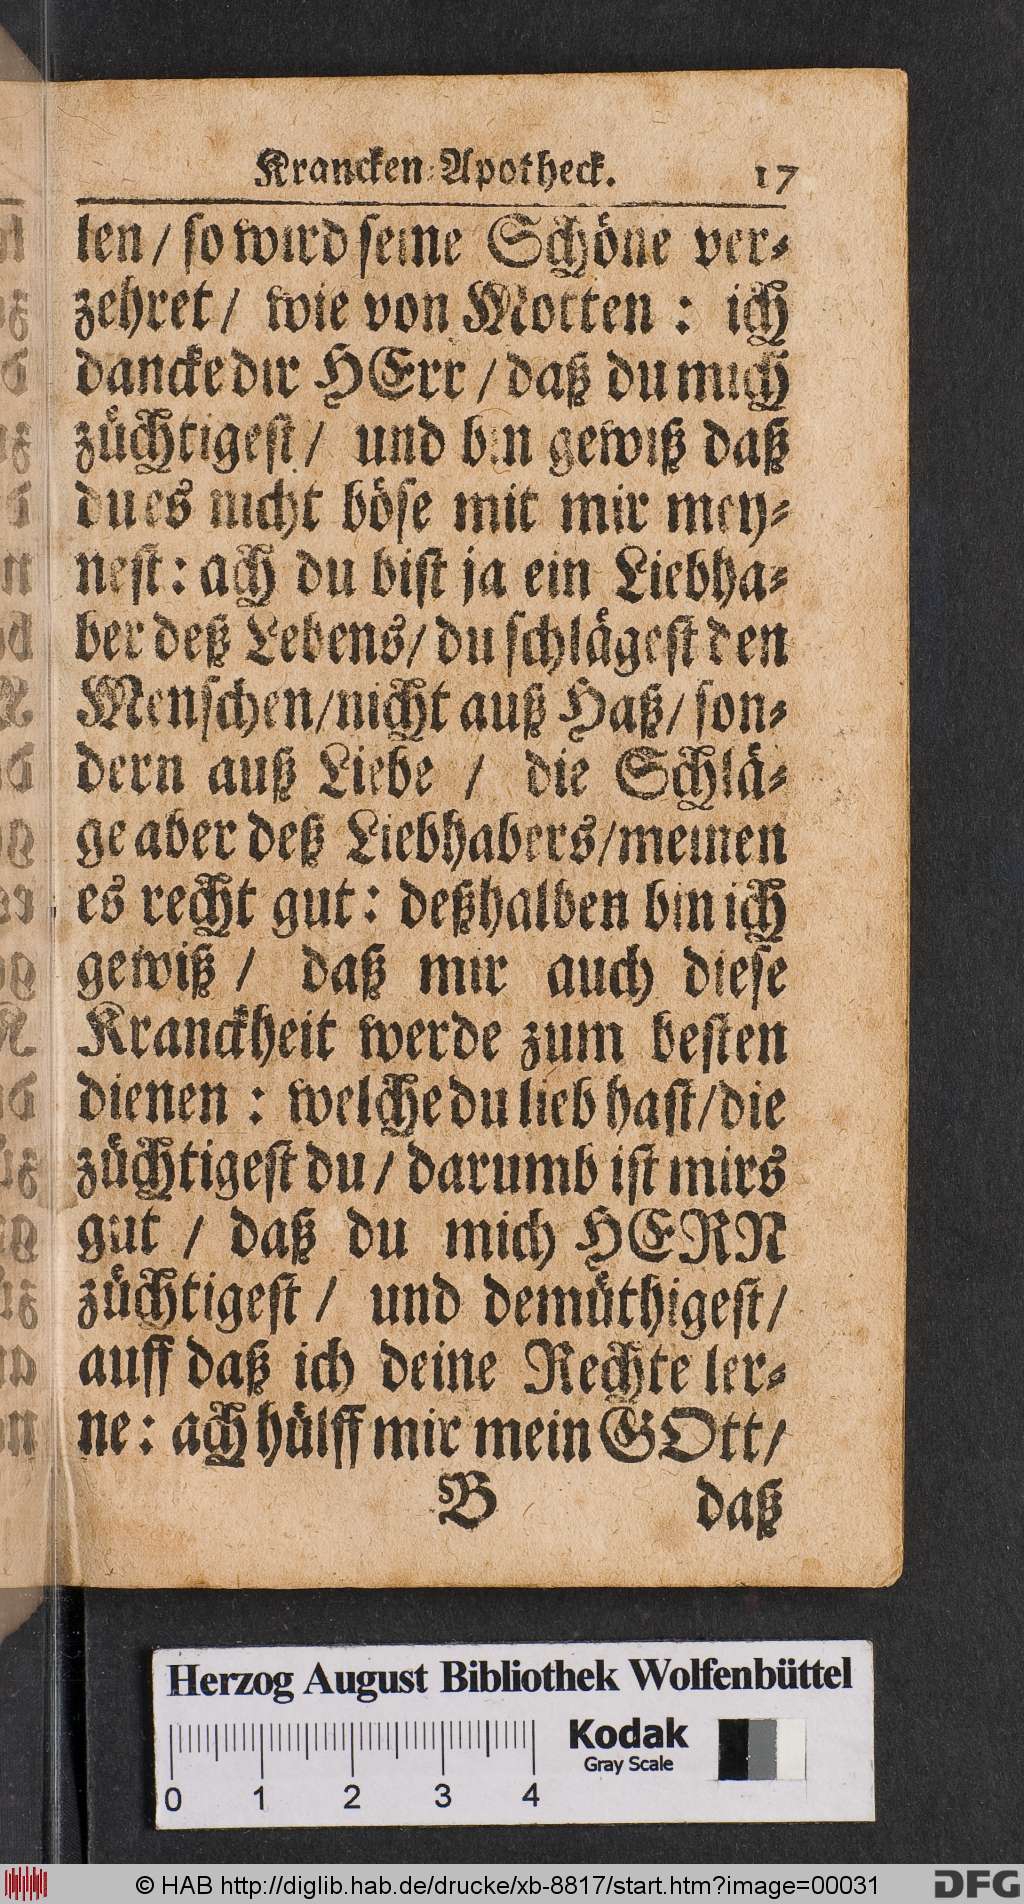 Krancken-Apotheck. 17
len / so wird seine Schöne ver-
zehret / wie von Motten : ich
dancke dir HErr / daß du mich
züchtigest / und bin gewiß daß
du es nicht böse mit mir mey-
nest : ach du bist ja ein Liebha-
ber deß Lebens / du schlägest den
Menschen / nicht auß Haß / son-
dern auß Liebe / die Schlä-
ge aber deß Liebhabers / meinen
es recht gut : deßhalben bin ich
gewiß / daß mir auch diese
Kranckheit werde zum besten
dienen : welche du lieb hast / die
züchtigest du / darumb ist mirs
gut / daß du mich HERR
züchtigest / und demüthigest /
auff daß ich deine Rechte ler-
ne : ach hülff mir mein GOtt /
B daß
Herzog August Bibliothek Wolfenbüttel
Kodak
Gray Scale
0 1 2 3 4
© HAB http://diglib.hab.de/drucke/xb-8817/start.htm?image=00031
DFG